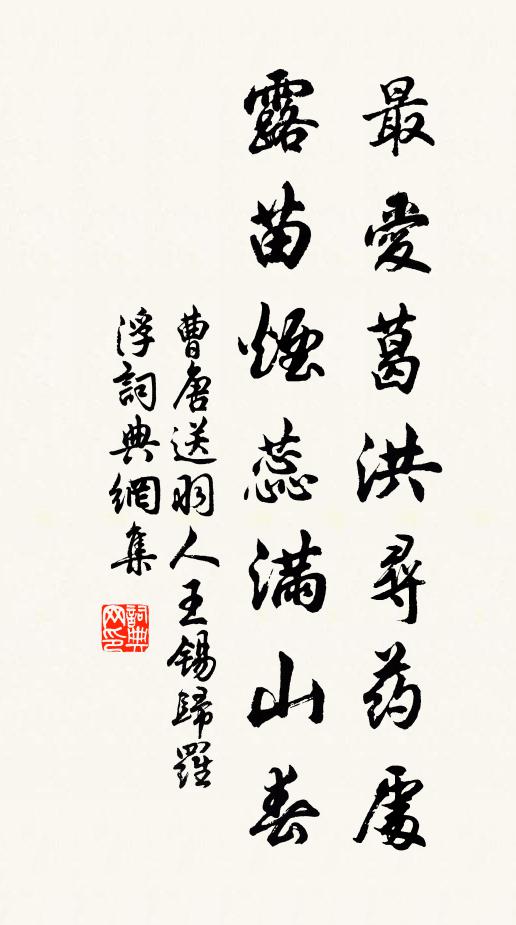 最愛葛洪尋药處
露苗煙蕊滿山春
曹唐送羽人王錫歸羅
浮詞典網集
詞典
网印